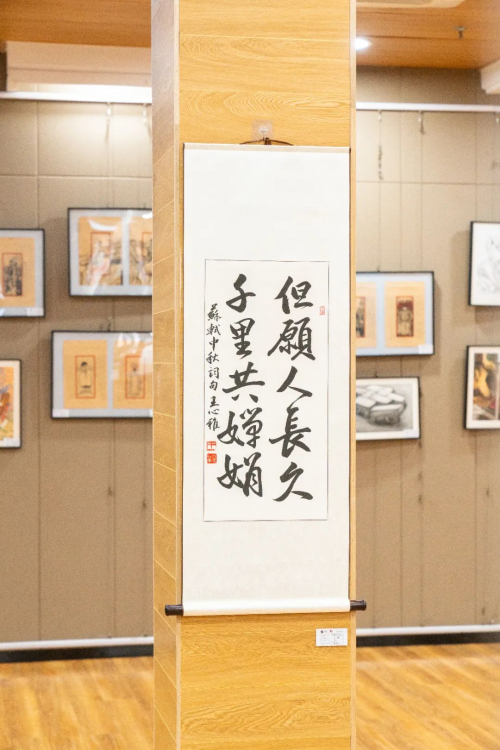 但願人長久
千里共嬋娟
蘇軾中秋詞句 王心雅